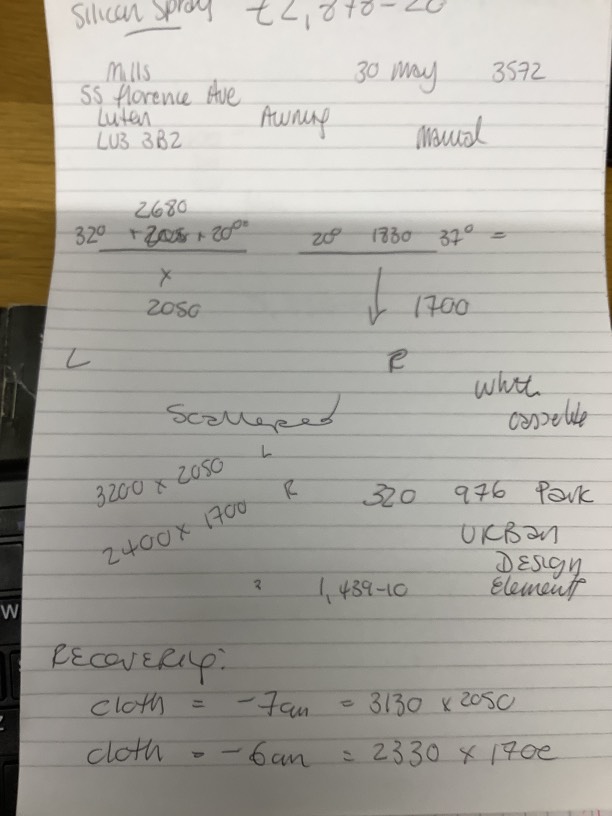 Silican Spray £2,878-20
Mills 30 May 3572
55 florence Ave
Luten Awning
LU3 3B2 Manual
2680
320 + + 200 20° 1830 370 =
x
2050 1700
L R
White
Scalleped cassette
3200 x 2050 L
R 320 976 Park
2400 x 1700
URBan
DESIGN
1,439-10 Elements
RECOVERING:
cloth = -7cm = 3130 x 2050
cloth = -6cm = 2330 x 1700